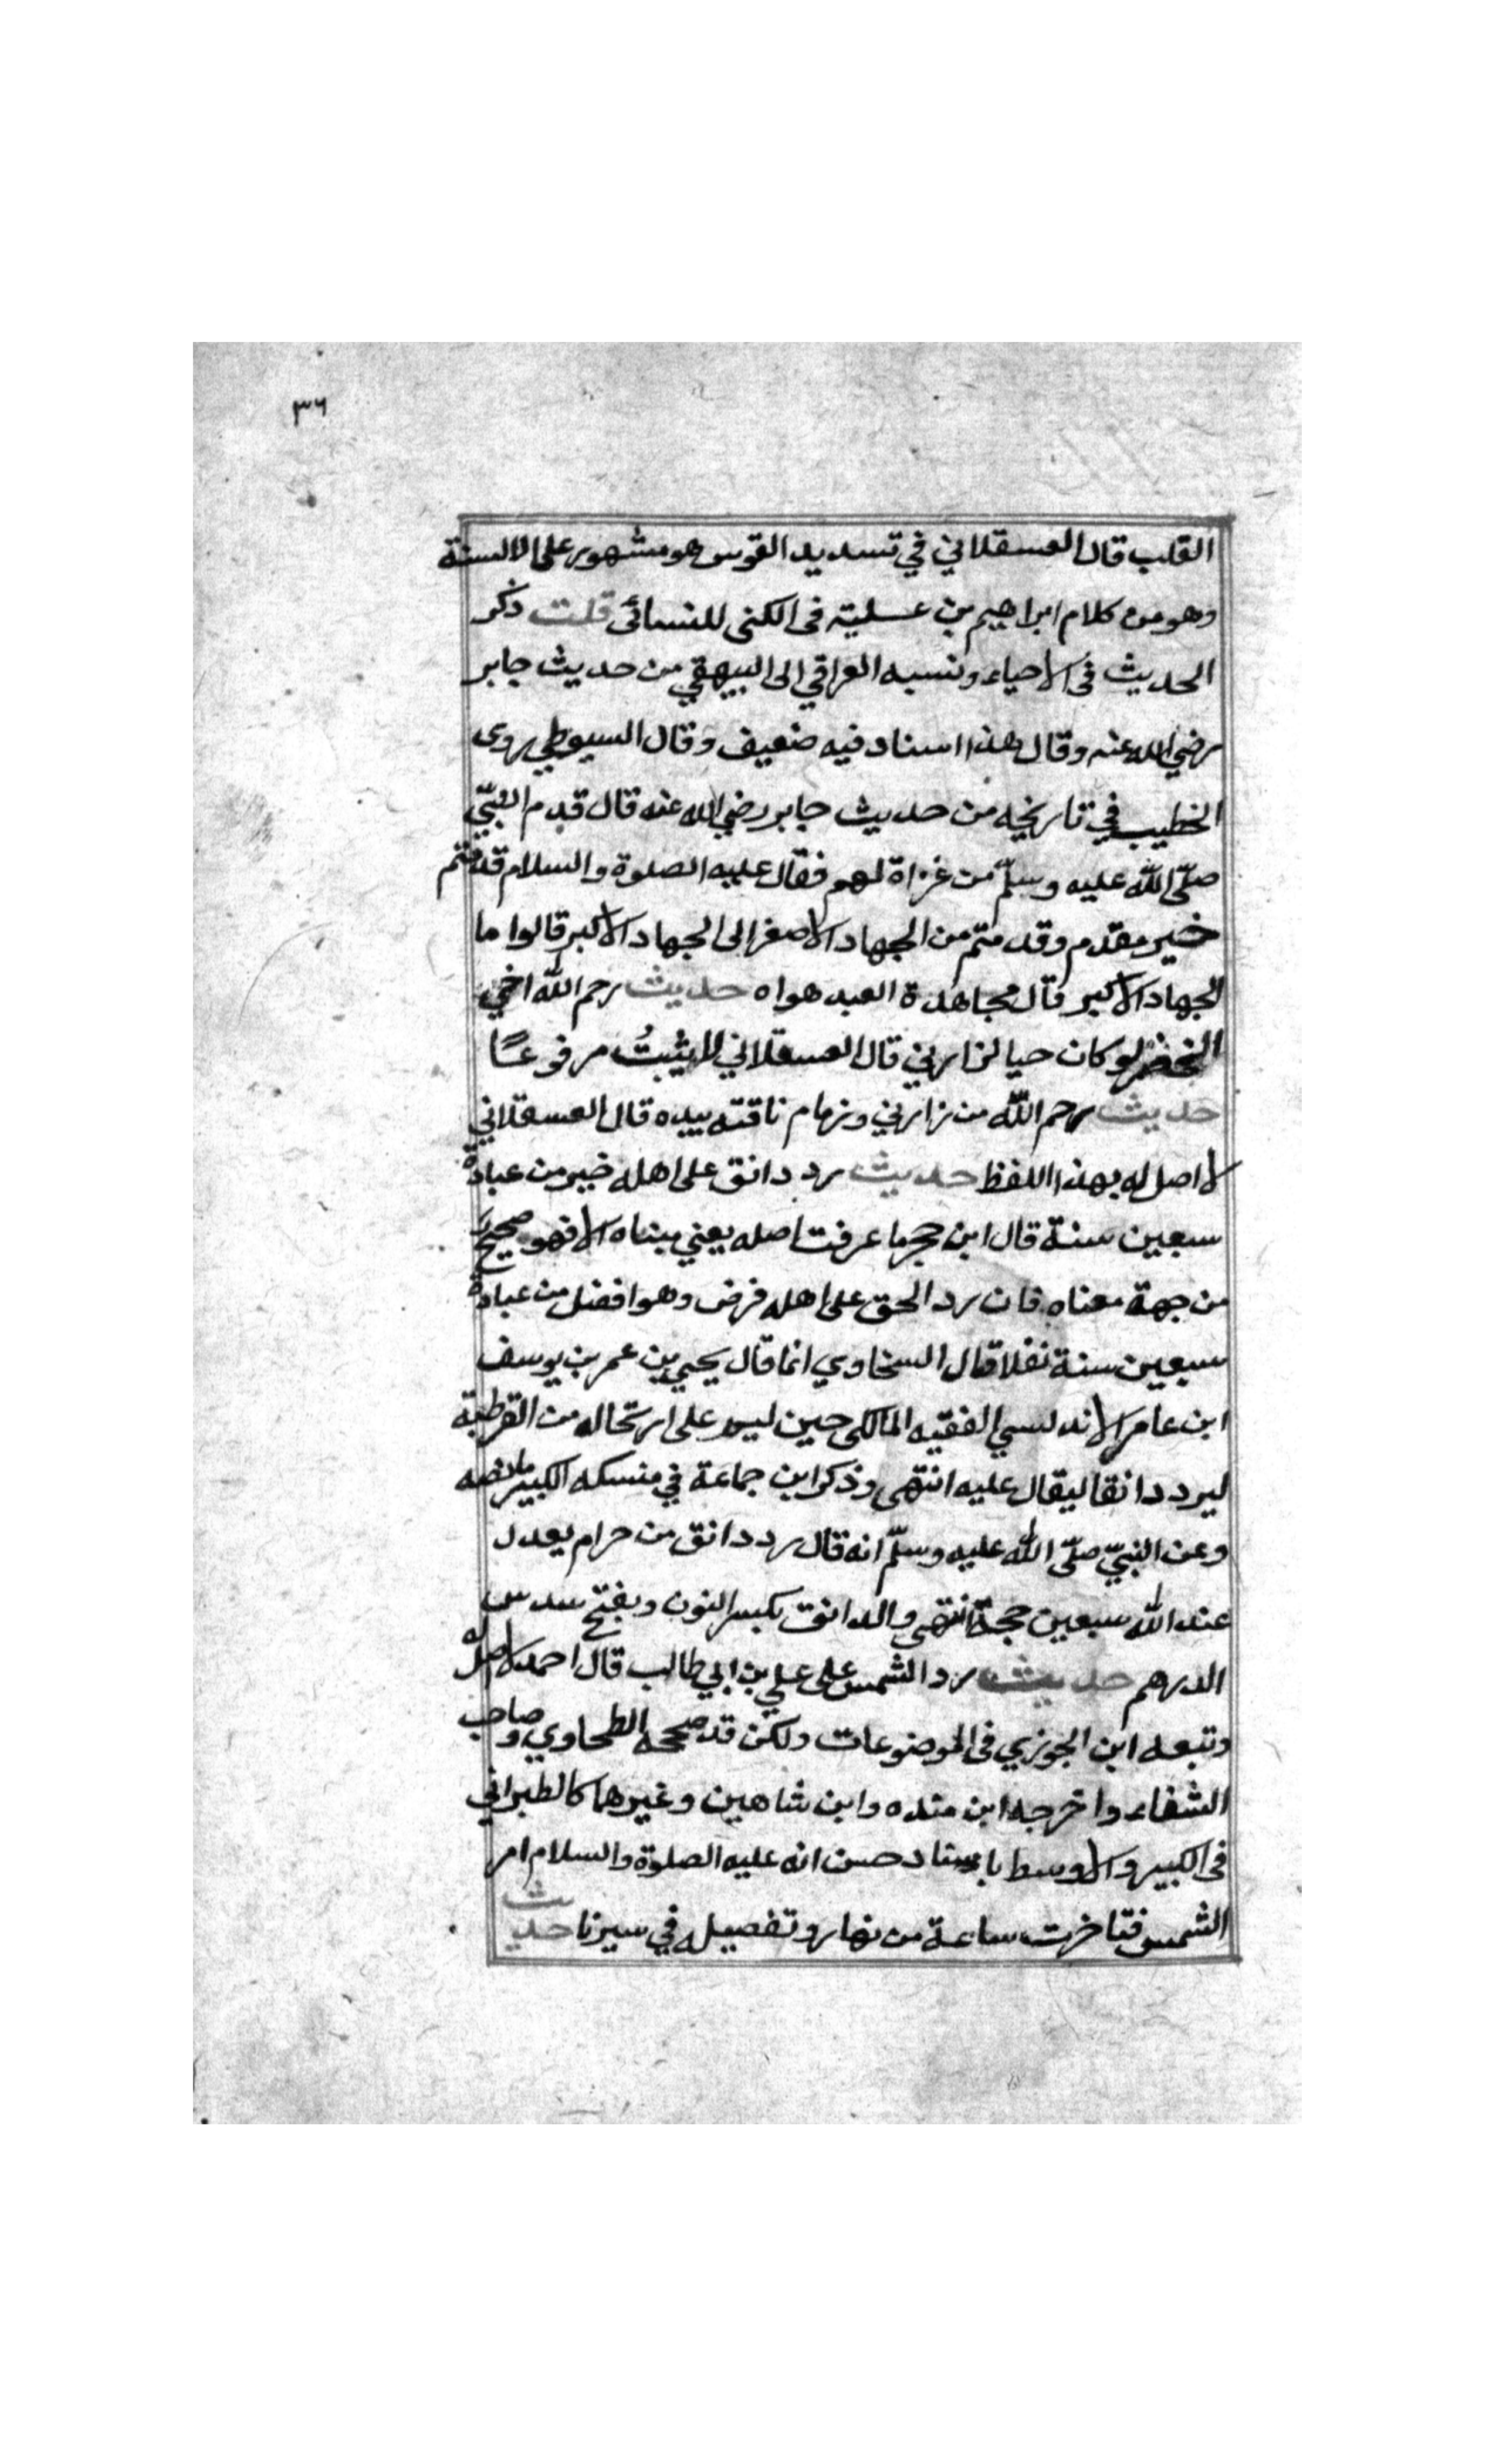 ٣٦
القلب قال العسقلاني في تسديد القوس هو مشهور على الالسنة
وهو من كلام ابراهيم بن عسلية فى الكنى للنسائى قلت ذكر
الحديث فى الاحياء ونسبه العراقي الى البيهقي من حديث جابر
رضي الله عنه وقال هذا اسناد فيه ضعيف وقال السيوطي روى
الخطيب في تاريخه من حديث جابر رضي الله عنه قال قدم النبيّ
صلّى اللّه عليه وسلّم من غزاة لهم فقال عليه الصلوة والسلام قدمتم
خير مقدم وقدمتم من الجهاد الاصغر الى الجهاد الاكبر قالوا ما
الجهاد الاكبر قال مجاهدة العبد هواه حديث رحم اللّه اخي
الخضر لو كان حيا لزارني قال العسقلاني لا يثبتُ مرفوعًا
حديث رحم اللّه من زارني وزمام ناقته بيده قال العسقلاني
لا اصل له بهذا اللفظ حديث رد دانق على اهله خير من عبادة
سبعين سنة قال ابن حجر ما عرفت اصله يعني مبناه الا فهو صحيح
من جهة معناه فان رد الحق على اهله فرض وهو افضل من عبادة
سبعين سنة نفلا قال السخاوي انما قال يحيى بن عمر بن يوسف
ابن عامر الاندلسي الفقيه المالكى حين ليم على ارتحاله من القرطبة
ليرد دانقا ليقال عليه انتهى وذكر ابن جماعة في منسكه الكبير ما نصه
وعن النبيّ صلّى اللّه عليه وسلّم انه قال رد دانق من حرام يعدل
عند اللّه سبعين حجة انتهى والدانق بكسر النون وبفتح سدس
الدرهم حديث رد الشمس على علي بن ابي طالب قال احمد لا اصل له
وتبعه ابن الجوزي فى الموضوعات ولكن قد صححه الطحاوي وصاحب
الشفاء واخرجه ابن منده وابن شاهين وغيرهما كالطبراني
فى الكبير والاوسط باسناد حسن انه عليه الصلوة والسلام امر
الشمس فتاخرت ساعة من نهار وتفصيله في سيرنا حديث